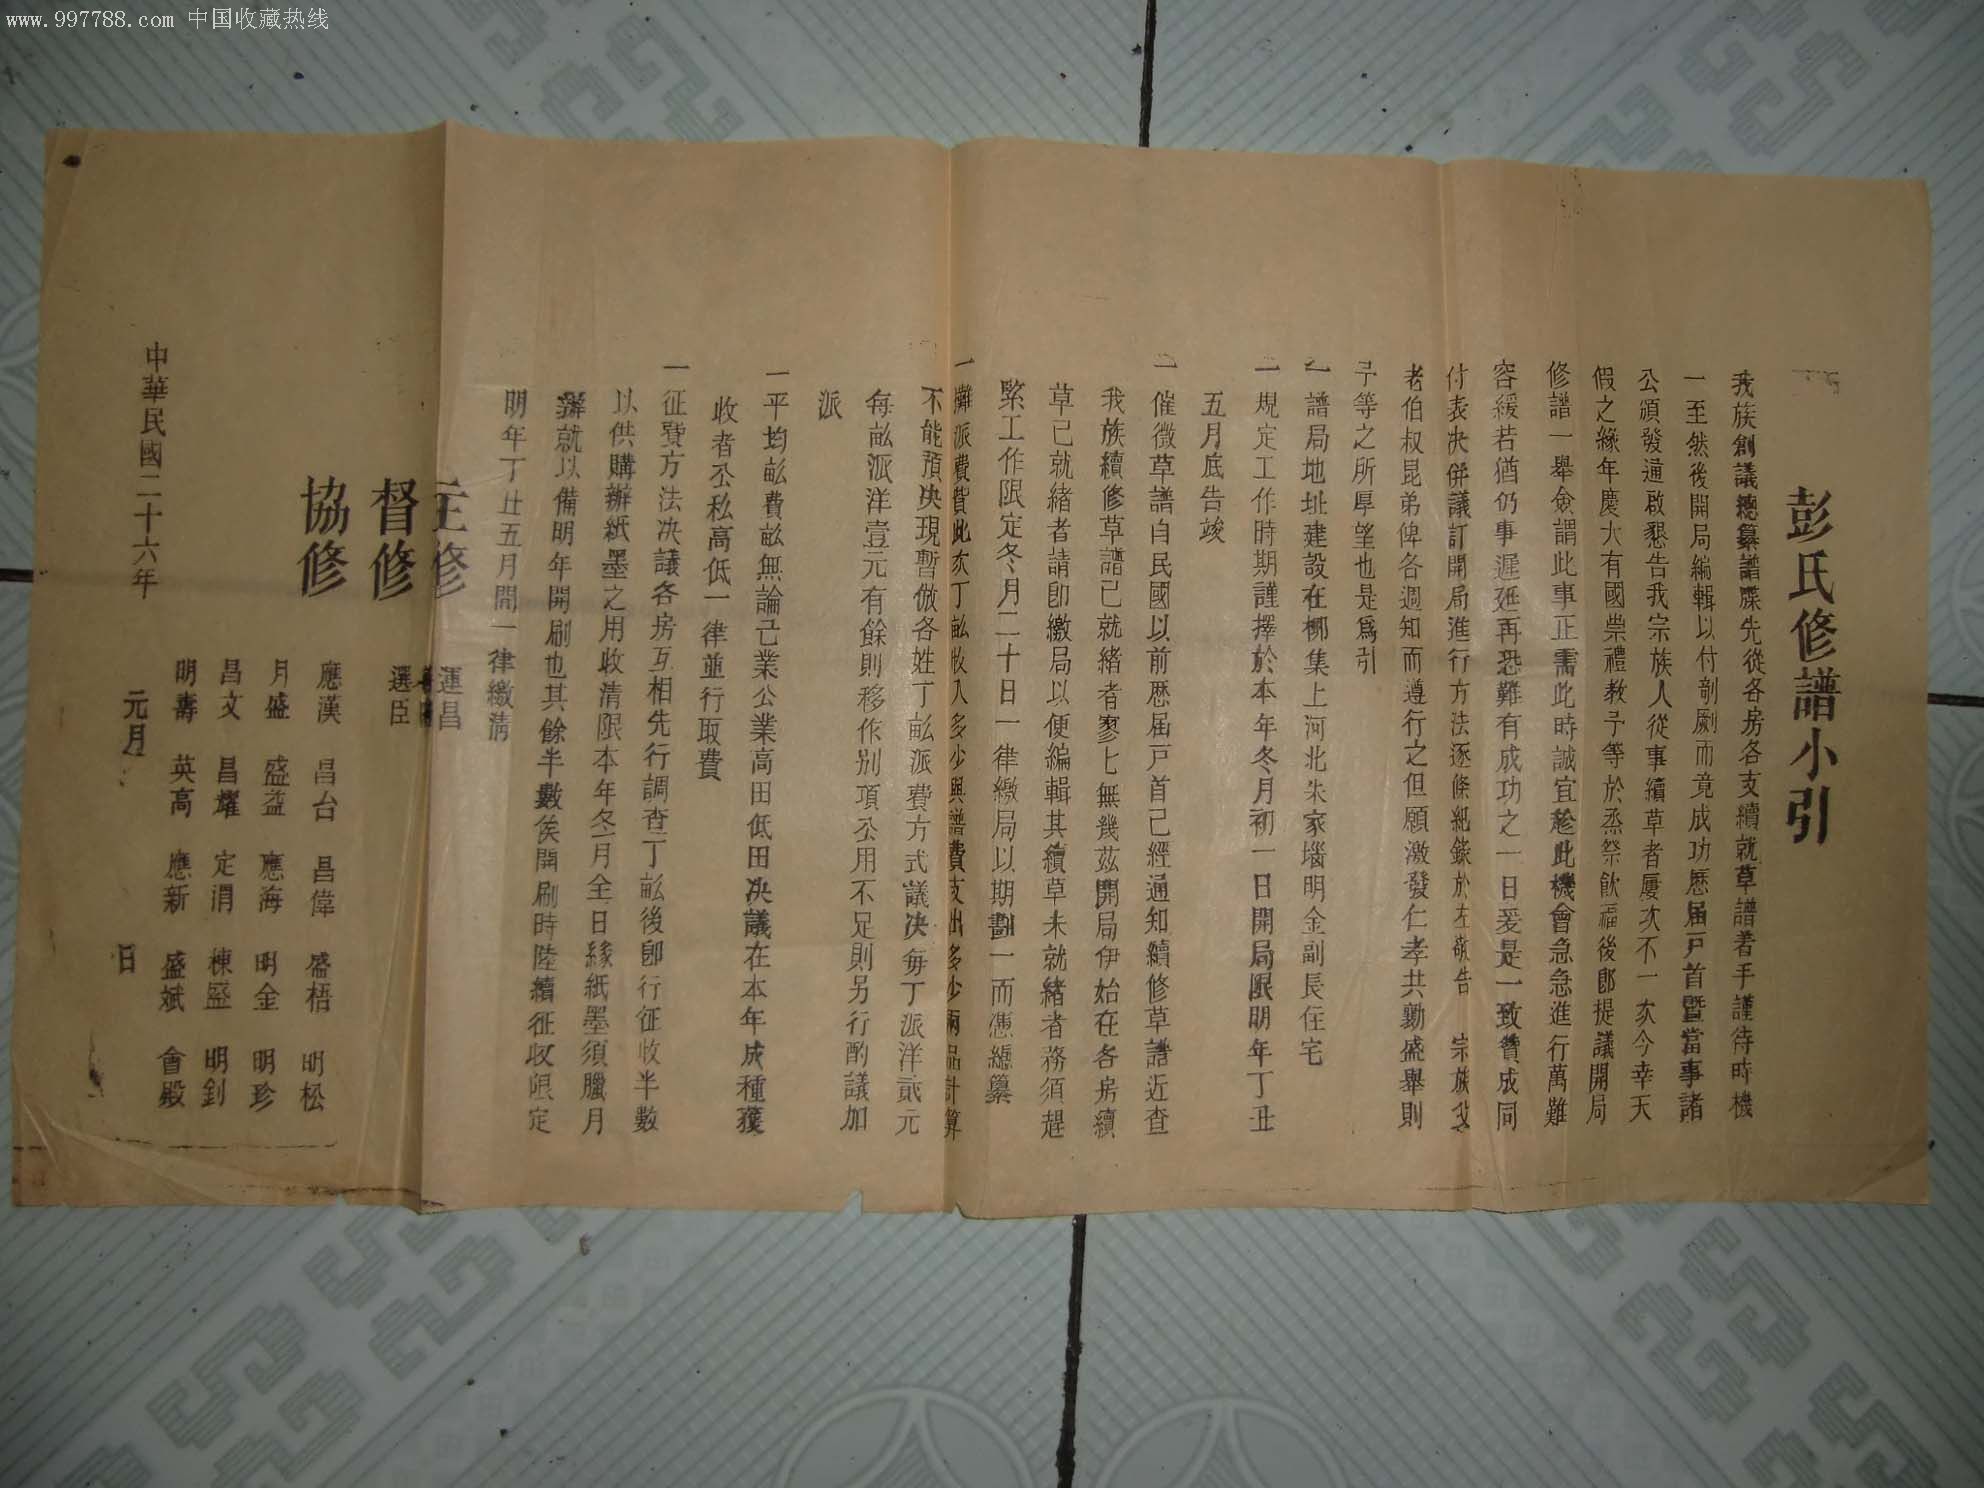 www.997788.com 中国收藏热线
彭氏修譜小引
我族創議總纂譜牒先從各房各支續就草譜着手謹待時機
一至然後開局編輯以付剞劂而竟成功歷届戸首暨當事諸
公頒發通啟懇告我宗族人從事續草者屢次不一次今幸天
假之緣年慶大有國崇禮教予等於烝祭飲福後卽提議開局
修譜一舉僉謂此事正需此時誠宜趁此機會急急進行萬難
容緩若猶仍事遲延再恐難有成功之一日爰是一致贊成同
付表决併議訂開局進行方法逐條紀錄於左敬告 宗族父
老伯叔昆弟俾各週知而遵行之但願激發仁孝共勷盛舉則
予等之所厚望也是爲引
一譜局地址建設在柳集上河北朱家堖明金副長住宅
一規定工作時期謹擇於本年冬月初一日開局限明年丁丑
五月底告竣
一催徵草譜自民國以前歷届戸首已經通知續修草譜近查
我族續修草譜已就緒者寥七無幾茲開局伊始在各房續
草已就緒者請卽繳局以便編輯其續草未就緒者務須趕
緊工作限定冬月二十日一律繳局以期劃一而憑總纂
一攤派費貲此次丁畝收入多少與譜費支出多少兩品計算
不能預决現暫倣各姓丁畝派費方式議决每丁派洋貳元
每畝派洋壹元有餘則移作别項公用不足則另行酌議加
派
一平均畝費畝無論己業公業高田低田决議在本年成種獲
收者不私高低一律並行取費
一征費方法决議各房互相先行調查丁畝後卽行征收半數
以供購辦紙墨之用收清限本年冬月全日緣紙墨須臘月
辦就以備明年開刷也其餘半數俟開刷時陸續征收限定
明年丁丑五月間一律繳清
主修 運昌
督修 選臣
協修 應漢 昌台 昌偉 盛梧 明松
月盛 盛益 應海 明金 明珍
昌文 昌耀 定渭 棟盛 明釗
明壽 英高 應新 盛斌 會殿
中華民國二十六年 元月 日